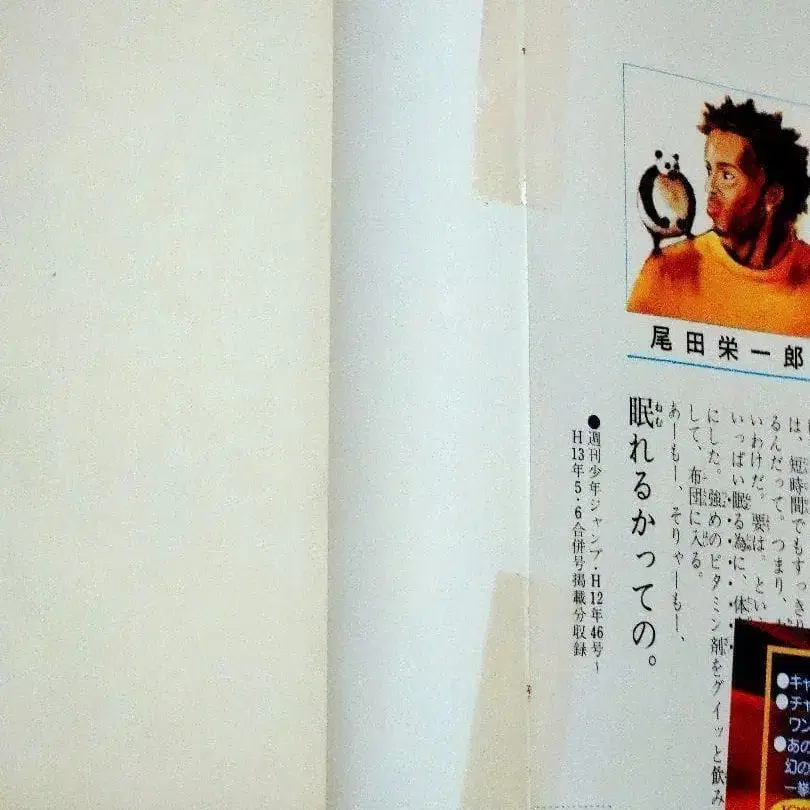 尾田栄一郎
は、短時間でもすっきり
るんだって。つまり、
いわけだ。要は。とい
いっぱい眠る為に、体
にした。強めのビタミン剤をグイッと飲み
して、布団に入る。
あーもー、そりゃーもー、
眠れるかっての。
●週刊少年ジャンプ・H12年46号〜
H13年5・6合併号掲載分収録
●キャ
●チャ
ワン
●あの
幻の
一挙